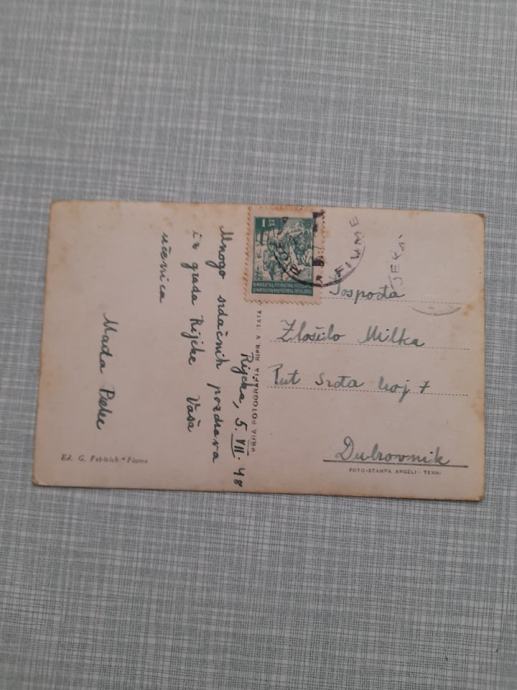 Rijeka, 5. VII. 48
Mnogo srdačnih pozdrava
iz grada Rijeke Vaša
učenica
Mada
Ed. G. Fabich - Fiume
VERA FOTOGRAFIA RIPR. VIETATA
FIUME
Gospođa
Zlošilo Milka
Put Srđa broj 7
Dubrovnik
FOTO-STAMPA ANGELI - TERNI